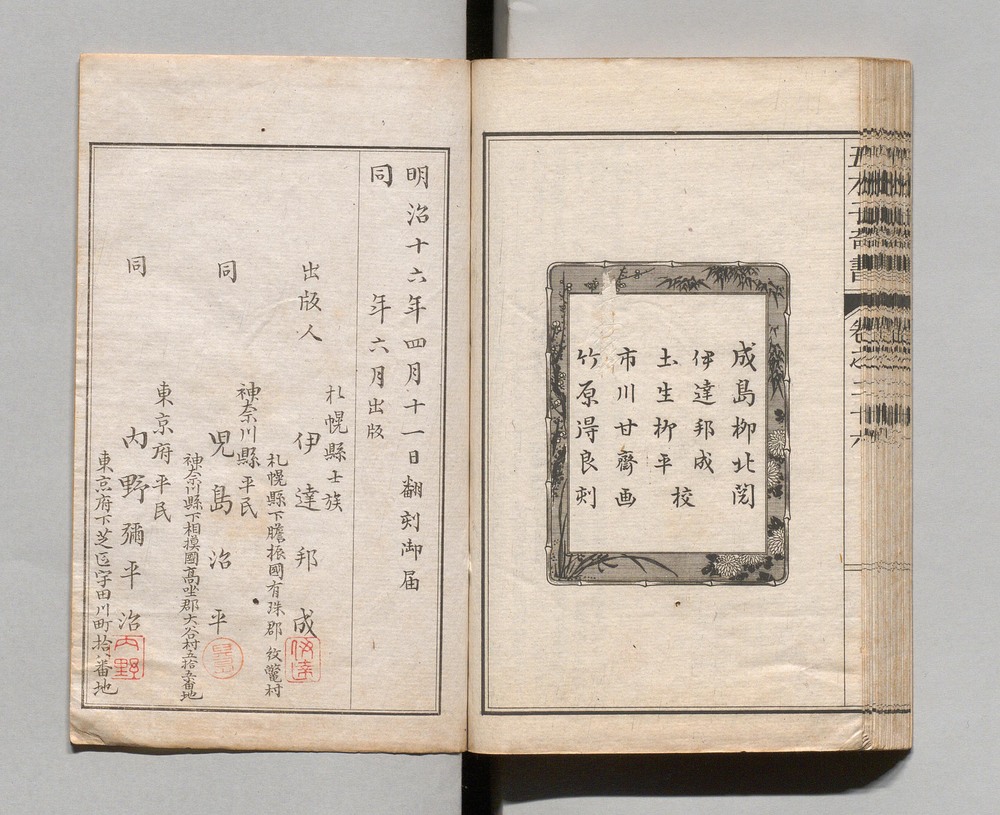 成島柳北閲
伊達邦成
土生柳平 校
市川甘齋画
竹原得良刻
明治十六年四月十一日翻刻御届
同 年六月出版
札幌縣士族
出版人 伊達邦成
札幌縣下膽振國有珠郡紋鼈村
神奈川縣平民
同 児島治平
神奈川縣下相摸國髙坐郡大谷村五拾五番地
東京府平民
同 内野彌平治
東京府下芝區宇田川町拾八番地
伊達
内野